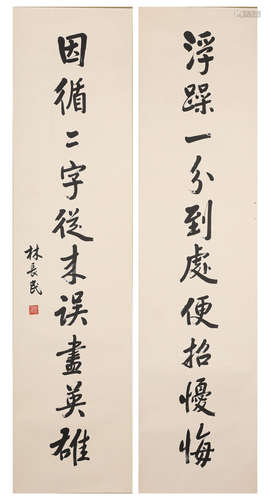 浮躁一分到處便招懮悔
因循二字從來誤盡英雄
林長民